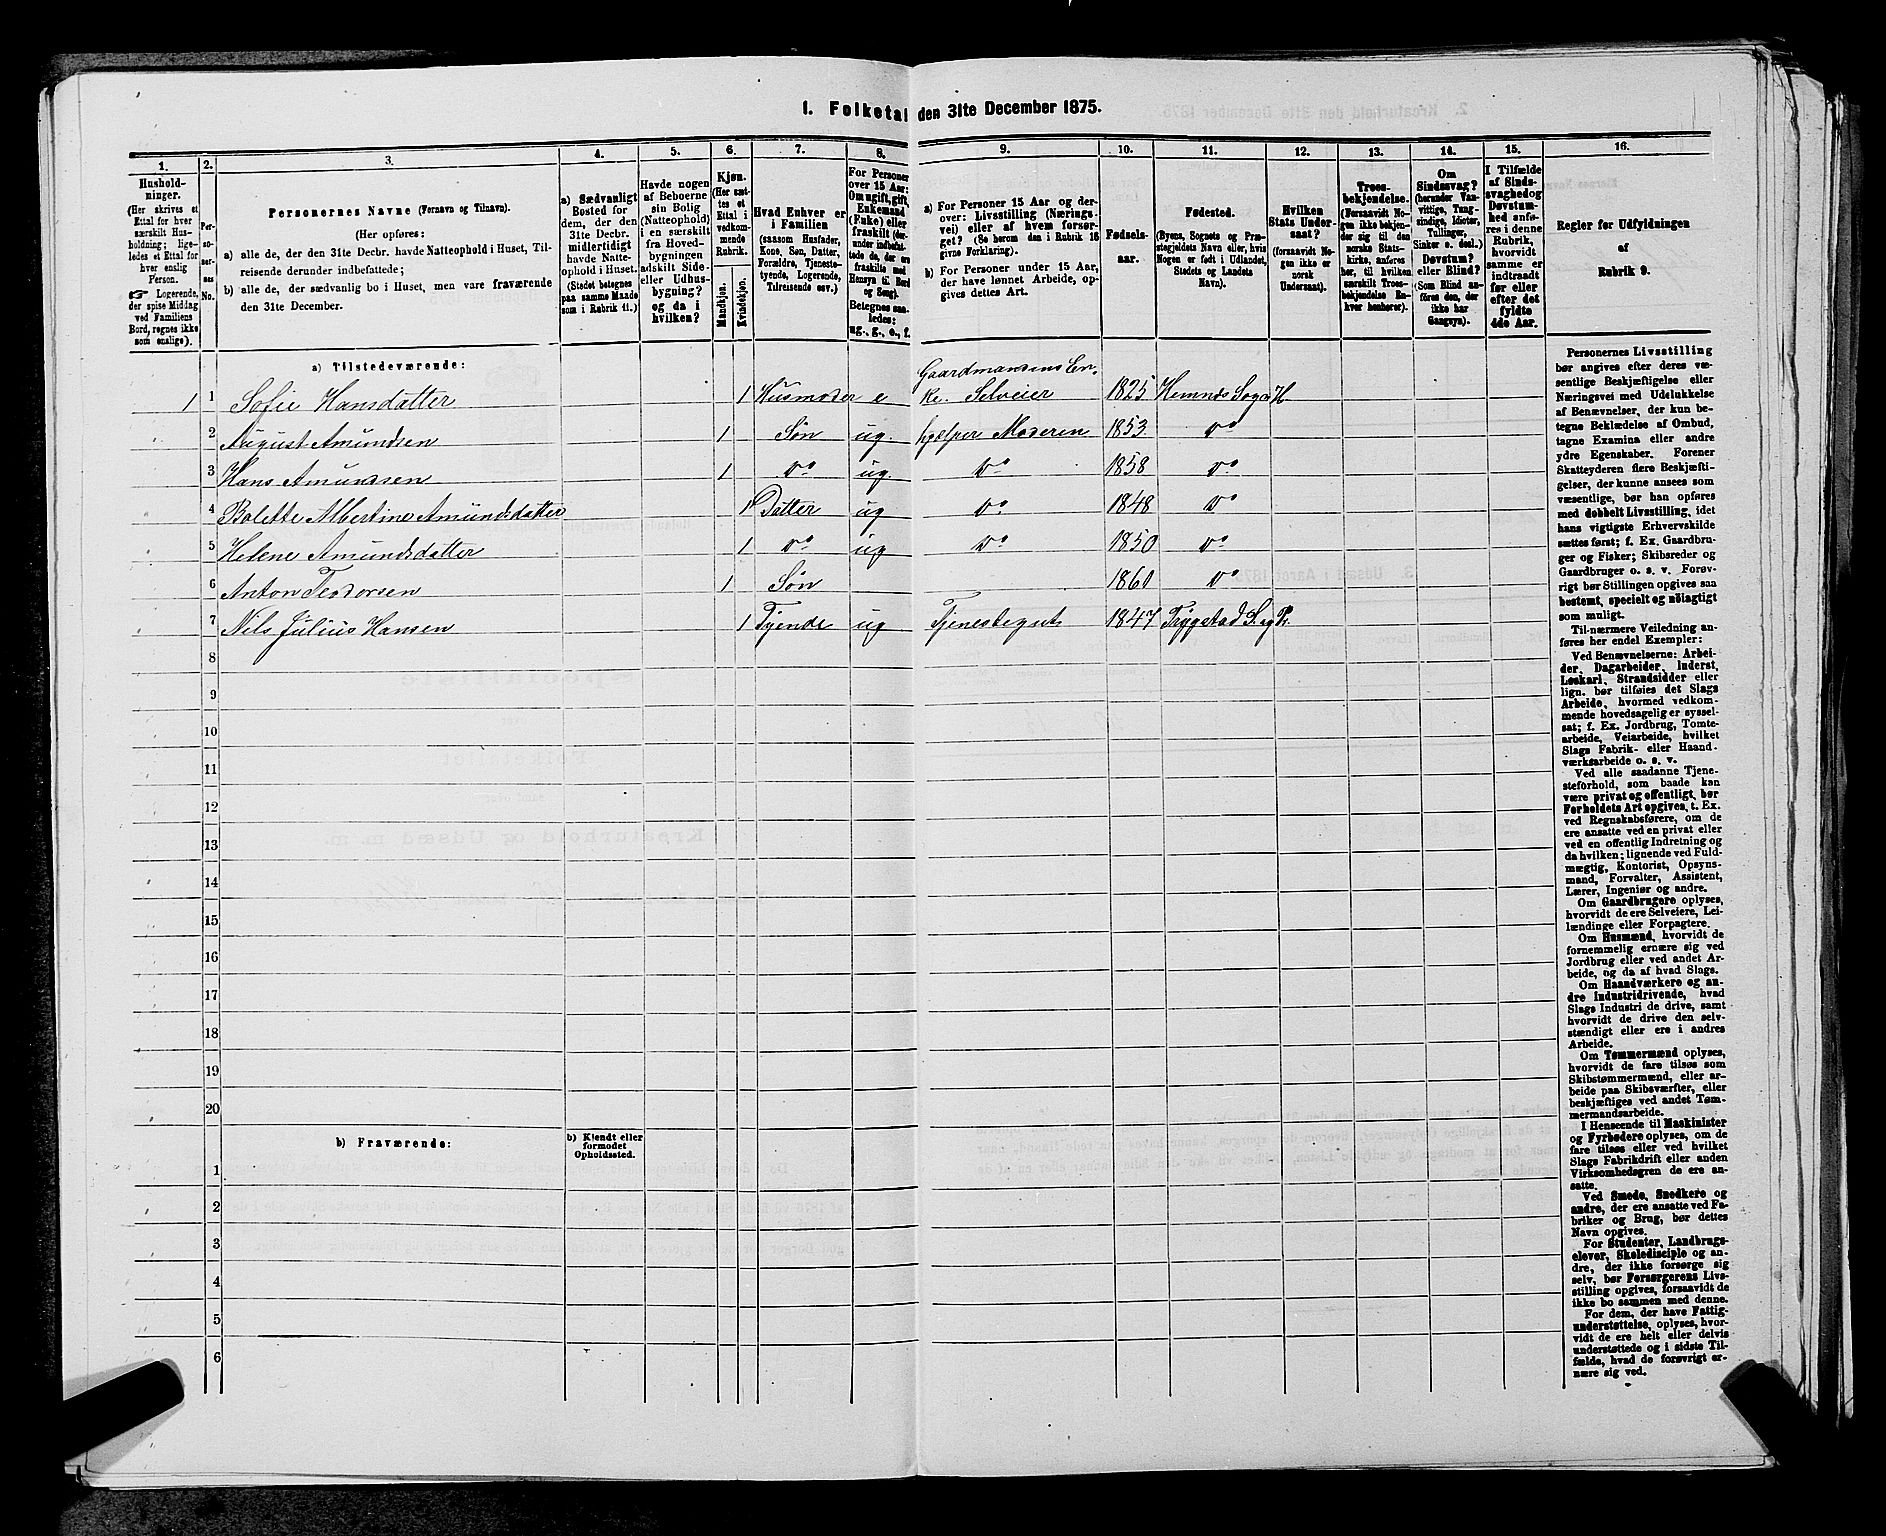 1. Folketal den 31te December 1875.
1. 2. 3. 4. 5. 6. 7. 8. 9. 10. 11. 12. 13. 14. 15. 16.
Hushold-
ninger.
(Her skrives et
Ettal for hver
særskilt Hus-
holdning; lige-
ledes et Ettal for
hver enslig
Person.
☞ Logerende,
der spise Middag
ved Familiens
Bord, regnes ikke
som enslige).
Per-
so-
ner-
nes
No.
Personernes Navne (Fornavn og Tilnavn).
(Her opføres:
a) alle de, der den 31te Decbr. havde Natteophold i Huset, Til-
reisende derunder indbefattede;
b) alle de, der sædvanlig bo i Huset, men vare fraværende
den 31te December.
a) Sædvanligt
Bosted for
dem, der den
31te Decbr.
midlertidigt
havde Natte-
ophold i Huset.
(Stedet betegnes
paa samme Maade
som i Rubrik 11.)
Havde nogen
af Beboerne
sin Bolig
(Natteophold)
i en særskilt
fra Hoved-
bygningen
adskilt Side-
eller Udhus-
bygning?
og da i
hvilken?
Kjøn.
(Her sæt-
tes et
Ettal i
vedkom-
mende
Rubrik.
Mandkjøn.
Kvindekjøn.
Hvad Enhver er
i Familien
(saasom Husfader,
Kone, Søn, Datter,
Forældre, Tjeneste-
tyende, Logerende,
Tilreisende osv.)
For Personer
over 15 Aar:
Om ugift, gift,
Enkemand
(Enke) eller
fraskilt (der-
under indbefat-
tede de, der ere
fraskilte med
Hensyn til Bord
og Seng).
Betegnes saa-
ledes:
ug., g., e., f.
a) For Personer 15 Aar og der-
over: Livsstilling (Nærings-
vei) eller af hvem forsør-
get? (Se herom den i Rubrik 16
givne Forklaring).
b) For Personer under 15 Aar,
der have lønnet Arbeide, op-
gives dettes Art.
Fødsels-
aar.
Fødested.
(Byens, Sognets og Præ-
stegjeldets Navn eller, hvis
Nogen er født i Udlandet,
Stedets og Landets
Navn).
Hvilken
Stats Under-
saat?
(forsaavidt No-
gen ikke er
norsk
Undersaat).
Troes-
bekjendelse.
(Forsaavidt No-
gen ikke bekjen-
der sig til den
norske Stats-
kirke, anføres
her, til hvilken
særskilt Troes-
bekjendelse En-
hver henhører).
Om
Sindssvag?
(herunder Van-
vittige, Tung-
sindige, Idioter,
Tullinger,
Sinker o. desl.)
Døvstum?
eller Blind?
(Som Blind an-
føres den, der
ikke har
Gangsyn).
I Tilfælde
af Sinds-
svaghed og
Døvstum-
hed anfø-
res i denne
Rubrik,
hvorvidt
samme er
indtraadt
før eller
efter det
fyldte
4de Aar.
Regler for Udfyldningen
af
Rubrik 9.
a) Tilstedeværende:
1 1 Sofie Hansdatter 1 Husmoder e Gaardmandens En-
ke. Selveier 1825 Hemnds Sogn H
2 August Amundsen 1 Søn ug. hjælper Moderen 1853 do
3 Hans Amundsen 1 do ug. do 1858 do
4 Bolette Albertine Amundsdatter 1 Datter ug do 1848 do
5 Helene Amundsdatter 1 do ug do 1850 do
6 Anton Teodorsen 1 Søn 1860 do
7 Nils Julius Hansen 1 Tyende ug Tjenestegut 1847 Trygstad S. og Pr.
8
9
10
11
12
13
14
15
16
17
18
19
20
b) Fraværende: b) Kjendt eller
formodet
Opholdssted.
1
2
3
4
5
6
Personernes Livsstilling
bør angives efter deres væ-
sentlige Beskjæftigelse eller
Næringsvei med Udelukkelse
af Benævnelser, der kun be-
tegne Beklædelse af Ombud,
tagne Examina eller andre
ydre Egenskaber. Forener
Skatteyderen flere Beskjæfti-
gelser, der kunne ansees som
væsentlige, bør han opføres
med dobbelt Livsstilling, idet
hans vigtigste Erhvervskilde
sættes først; f. Ex. Gaardbru-
ger og Fisker; Skibsreder og
Gaardbruger o. s. v. Forøv-
rigt bør Stillingen opgives saa
bestemt, specielt og nøiagtigt
som muligt.
Til nærmere Veiledning an-
føres her endel Exempler:
Ved Benævnelserne: Arbei-
der, Dagarbeider, Inderst,
Løskarl, Strandsidder eller
lign. bør tilføies det Slags
Arbeide, hvormed vedkom-
mende hovedsagelig er syssel-
sat; f. Ex. Jordbrug, Tomte-
arbeide, Veiarbeide, hvilket
Slags Fabrik- eller Haand-
værksarbeide o. s. v.
Ved alle saadanne Tjene-
steforhold, som baade kan
være privat og offentligt, bør
Forholdets Art opgives, t. Ex.
ved Regnskabsførere, om de
ere ansatte ved en privat eller
ved en offentlig Indretning og
da hvilken; lignende ved Fuld-
mægtig, Kontorist, Opsyns-
mand, Forvalter, Assistent,
Lærer, Ingeniør og andre.
Om Gaardbrugere oplyses,
hvorvidt de ere Selveiere, Lei-
lændinge eller Forpagtere.
Om Husmænd, hvorvidt de
fornemmelig ernære sig ved
Jordbrug eller ved andet Ar-
beide, og da af hvad Slags.
Om Haandværkere og an-
dre Industridrivende, hvad
Slags Industri de drive, samt
hvorvidt de drive den selv-
stændigt eller ere i andres
Arbeide.
Om Tømmermænd oplyses,
hvorvidt de fare tilsøs som
Skibstømmermænd, eller ar-
beide paa Skibsværfter, eller
beskjæftiges ved andet Tøm-
mermandsarbeide.
I Henseende til Maskinister
og Fyrbødere oplyses, om de
fare tilsøs eller ved hvilket
Slags Fabrikdrift eller anden
Virksomhedsgren de ere an-
satte.
Ved Smede, Snedkere og
andre, der ere ansatte ved Fa-
briker og Brug, bør dettes
Navn opgives.
For Studenter, Landbrugs-
elever, Skoledisciple og an-
dre, der ikke forsørge sig
selv, bør Forsørgerens Livs-
stilling opgives, forsaavidt de
ikke bo sammen med denne.
For dem, der have Fattig-
understøttelse, oplyses, hvor-
vidt de ere helt eller delvis
understøttede og i sidste Til-
fælde, hvad de forøvrigt er-
nære sig ved.